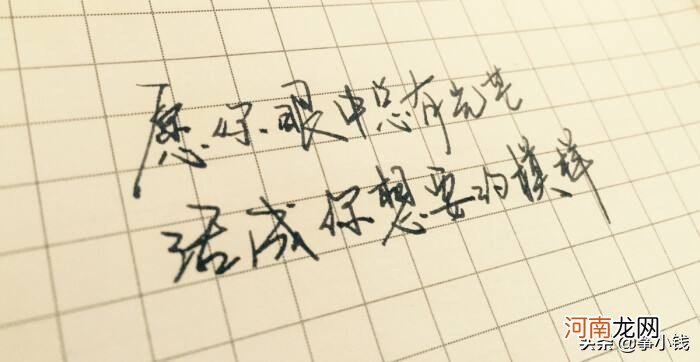 愿你眼中总有光芒
活成你想要的模样
河南龙网
头条@拿小钱